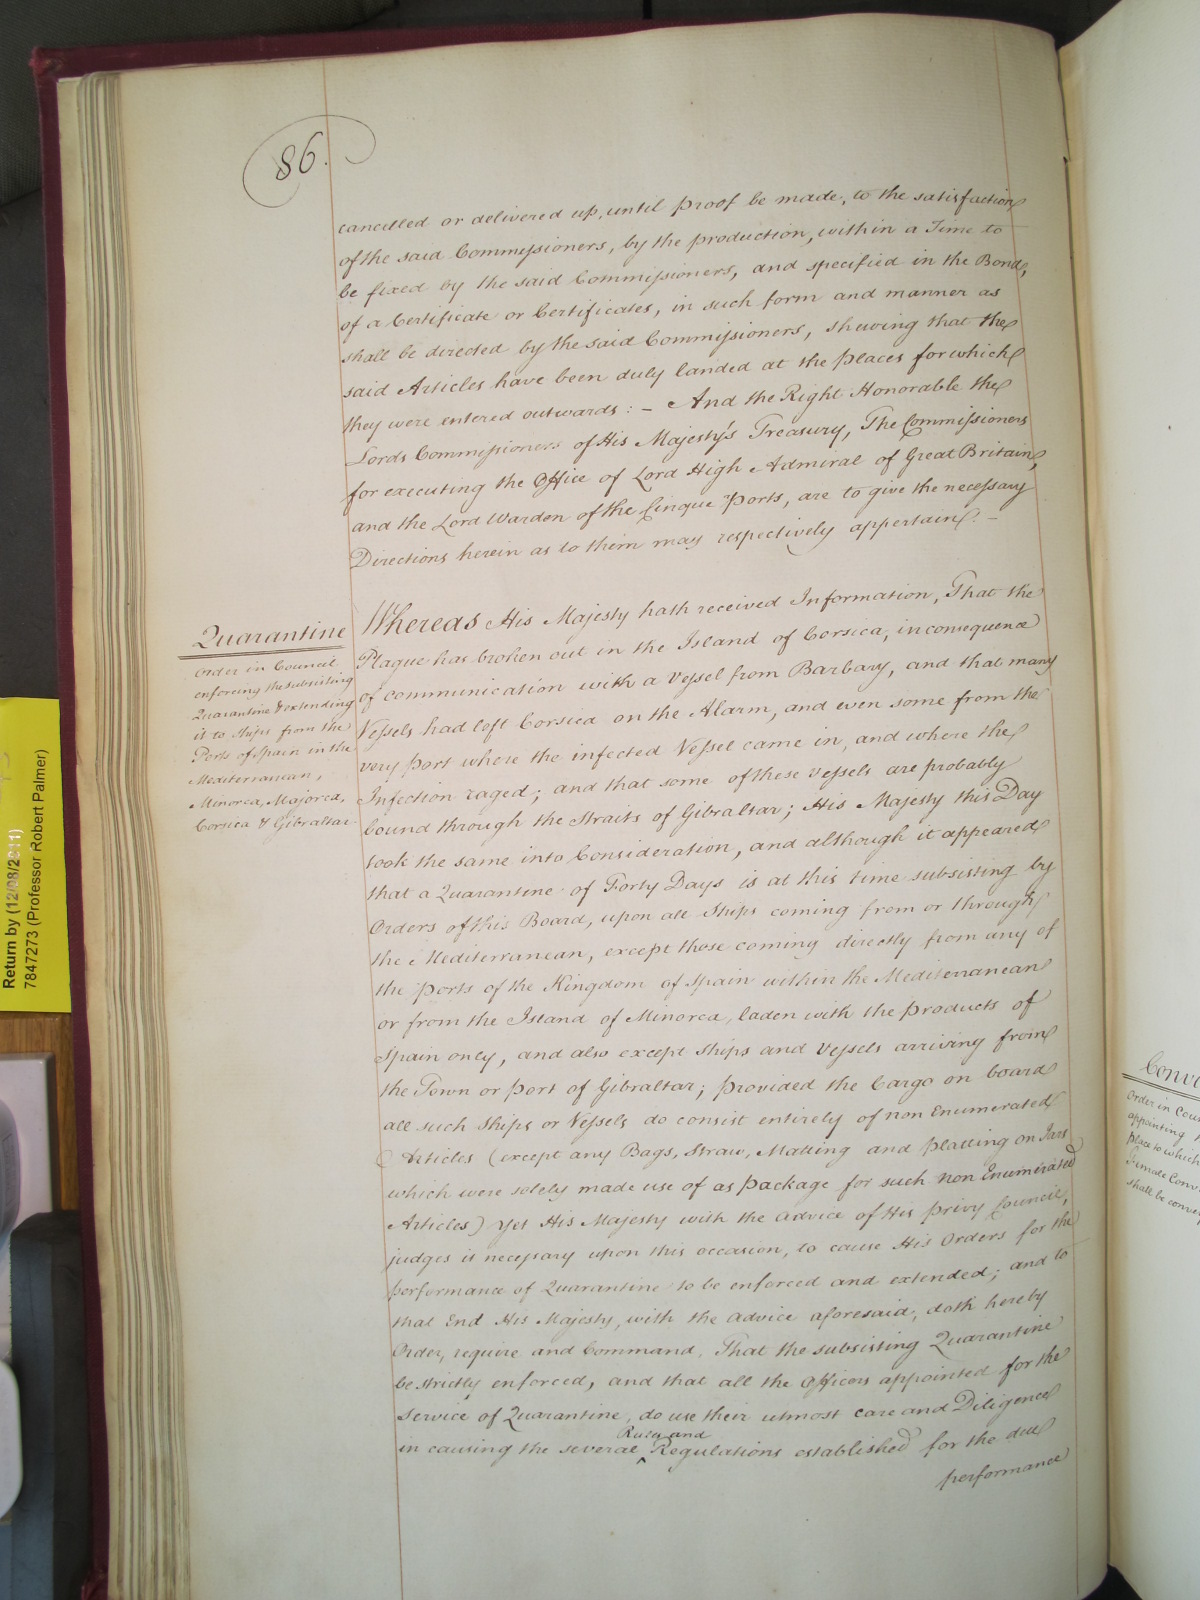 86.
cancelled or delivered up, until proof be made, to the satisfaction
of the said Commissioners, by the production, within a Time to
be fixed by the said Commissioners, and specified in the Bond,
of a Certificate or Certificates, in such form and manner as
shall be directed by the said Commissioners, shewing that the
said Articles have been duly landed at the places for which
they were entered outwards : – And the Right Honorable the
Lords Commissioners of His Majesty's Treasury, The Commissioners
for executing the Office of Lord High Admiral of Great Britain,
and the Lord Warden of the Cinque Ports, are to give the necessary
Directions herein as to them may respectively appertain. –
Quarantine
Order in Council
enforcing the subsisting
Quarantine & extending
it to Ships from the
Ports of Spain in the
Mediterranean,
Minorca, Majorca,
Corsica & Gibraltar
Whereas His Majesty hath received Information, That the
Plague has broken out in the Island of Corsica, in consequence
of communication with a Vessel from Barbary, and that many
Vessels had left Corsica on the Alarm, and even some from the
very port where the infected Vessel came in, and where the
Infection raged; and that some of these Vessels are probably
bound through the Straits of Gibraltar; His Majesty this Day
took the same into Consideration, and although it appeared
that a Quarantine of Forty Days is at this time subsisting by
Orders of this Board, upon all Ships coming from or through
the Mediterranean, except those coming directly from any of
the Ports of the Kingdom of Spain within the Mediterranean
or from the Island of Minorca, laden with the products of
Spain only, and also except Ships and Vessels arriving from
the Town or Port of Gibraltar; provided the Cargo on board
all such Ships or Vessels do consist entirely of non Enumerated
Articles (except any Bags, Straw, Matting and platting on Jars
which were solely made use of as package for such non Enumerated
Articles) Yet His Majesty with the Advice of His Privy Council,
judges it necessary upon this occasion, to cause His Orders for the
performance of Quarantine to be enforced and extended; and to
that End His Majesty, with the Advice aforesaid, doth hereby
Order, require and Command, That the subsisting Quarantine
be strictly enforced, and that all the Officers appointed for the
Service of Quarantine, do use their utmost care and Diligence
Rules and
in causing the several ‸ Regulations established for the due
performance
Return by (12/08/2011)
7847273 (Professor Robert Palmer)
Order in Coun
appointing
Place to which
Female Conv
shall be convey